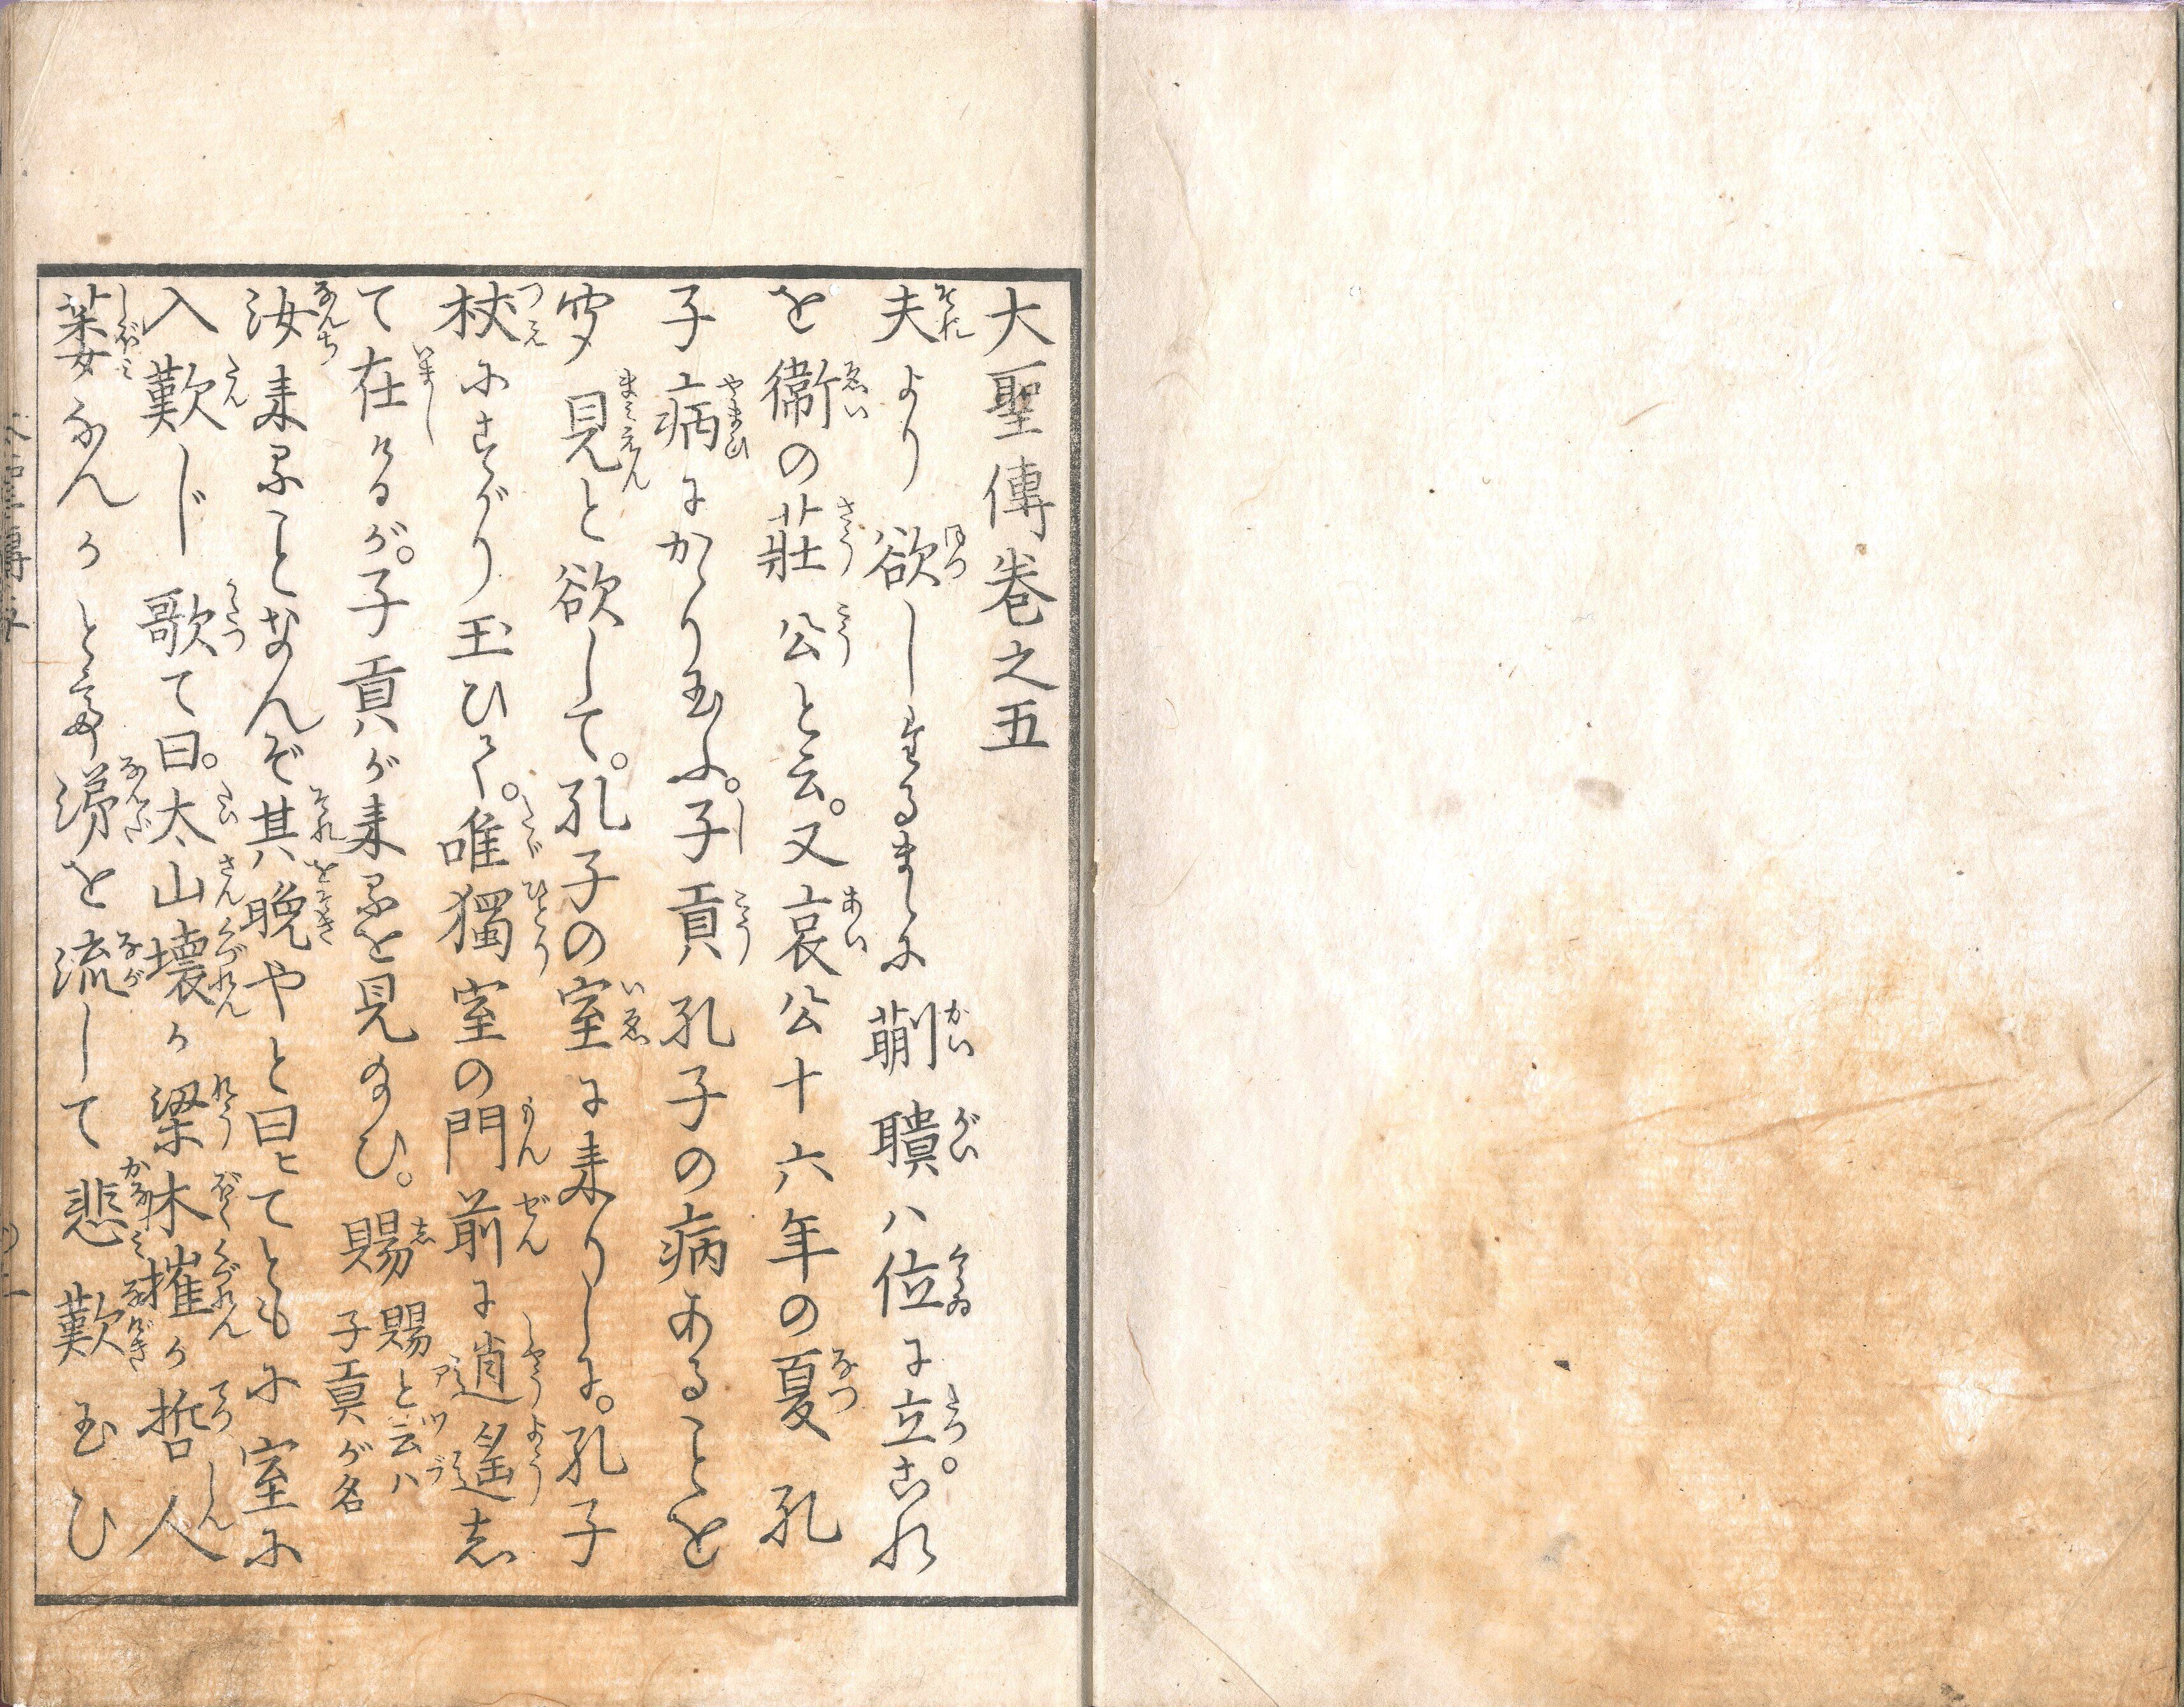 大聖傳巻之五
夫より欲しまするまゝに蒯聵ハ位に立。これ
を衞の莊公と云。又哀公十六年の夏孔
子病にかゝり玉ふ。子貢孔子の病あることを
見と欲して。孔子の室に来りしに。孔子
杖にすがり玉ひて。唯獨室の門前に逍遙し
て在けるが。子貢が来るを見玉ひ。賜 賜と云ハ子貢が名
汝来ることなんぞ其晩やと曰ヒてともに室に
入歎じ歌て曰。太山壊か梁木摧か哲人
萎なんかと 涕を流して悲歎玉ひ